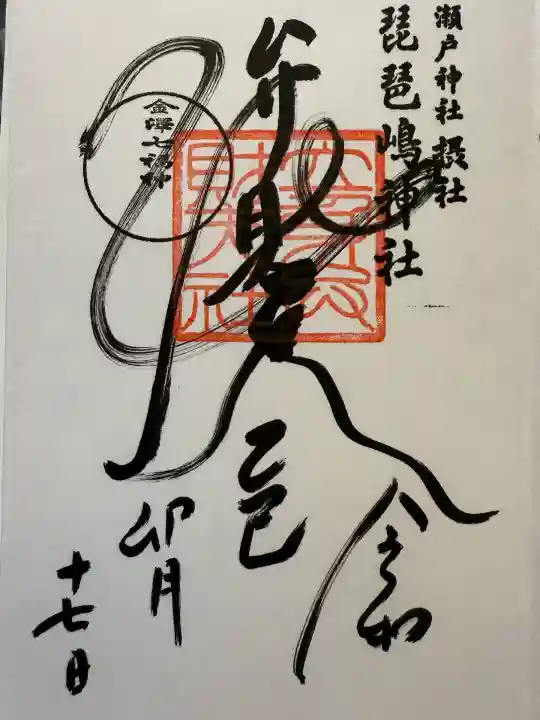 瀬戸神社 摂社
琵琶嶋神社
令和
弁財天
乙巳
卯月
十七日
金澤七福神